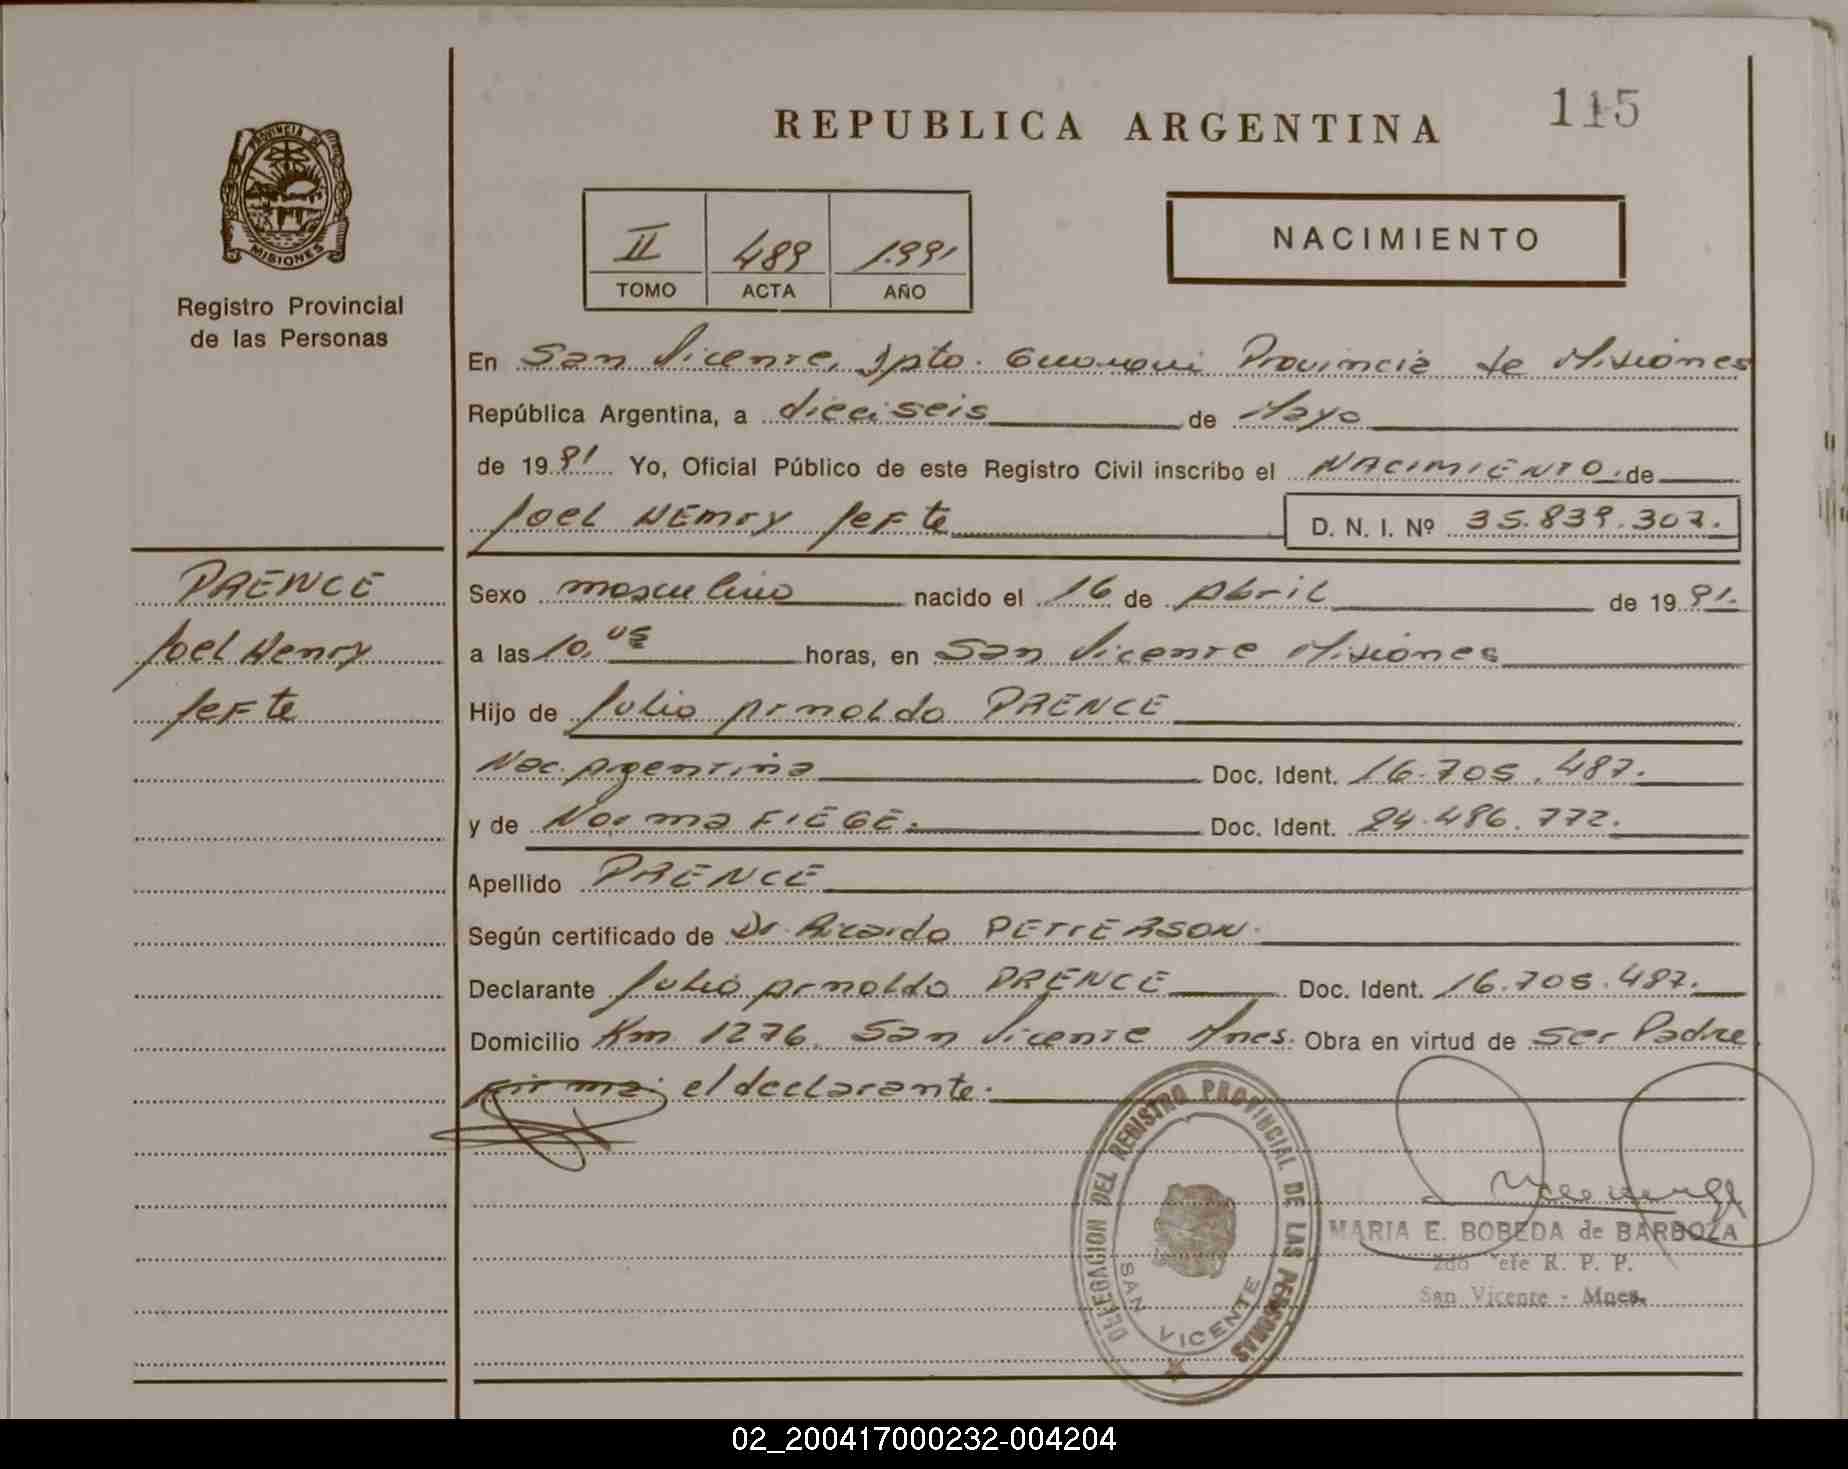 115
REPUBLICA ARGENTINA
PROVINCIA DE
MISIONES
Registro Provincial
de las Personas
II 489 1.991
TOMO ACTA AÑO
NACIMIENTO
En San Vicente, Dpto. Guarani Provincia de Misiones
República Argentina, a dieciseis de Mayo
de 1991 Yo, Oficial Público de este Registro Civil inscribo el NACIMIENTO de
Joel HEnry JeFte D. N. I. Nº 35.839.307.
PRENCE
Joel Henry
JeFte
Sexo masculino nacido el 16 de Abril de 1991.
a las 10, 05 horas, en San Vicente Misiones
Hijo de Julio Arnoldo PRENCE
Nac. Argentina Doc. Ident. 16.705.487.
y de Norma FIEGE. Doc. Ident. 24.486.772.
Apellido PRENCE
Según certificado de Dr. Ricardo PETTERSON.
Declarante Julio Arnoldo PRENCE Doc. Ident. 16.705.487.
Domicilio Km 1276, San Vicente Mnes. Obra en virtud de ser Padre
Firma el declarante.
DELEGACION DEL REGISTRO PROVINCIAL DE LAS PERSONAS
SAN VICENTE
MARIA E. BOBEDA de BARBOZA
2do Jefe R. P. P.
San Vicente - Mnes.
02_200417000232-004204